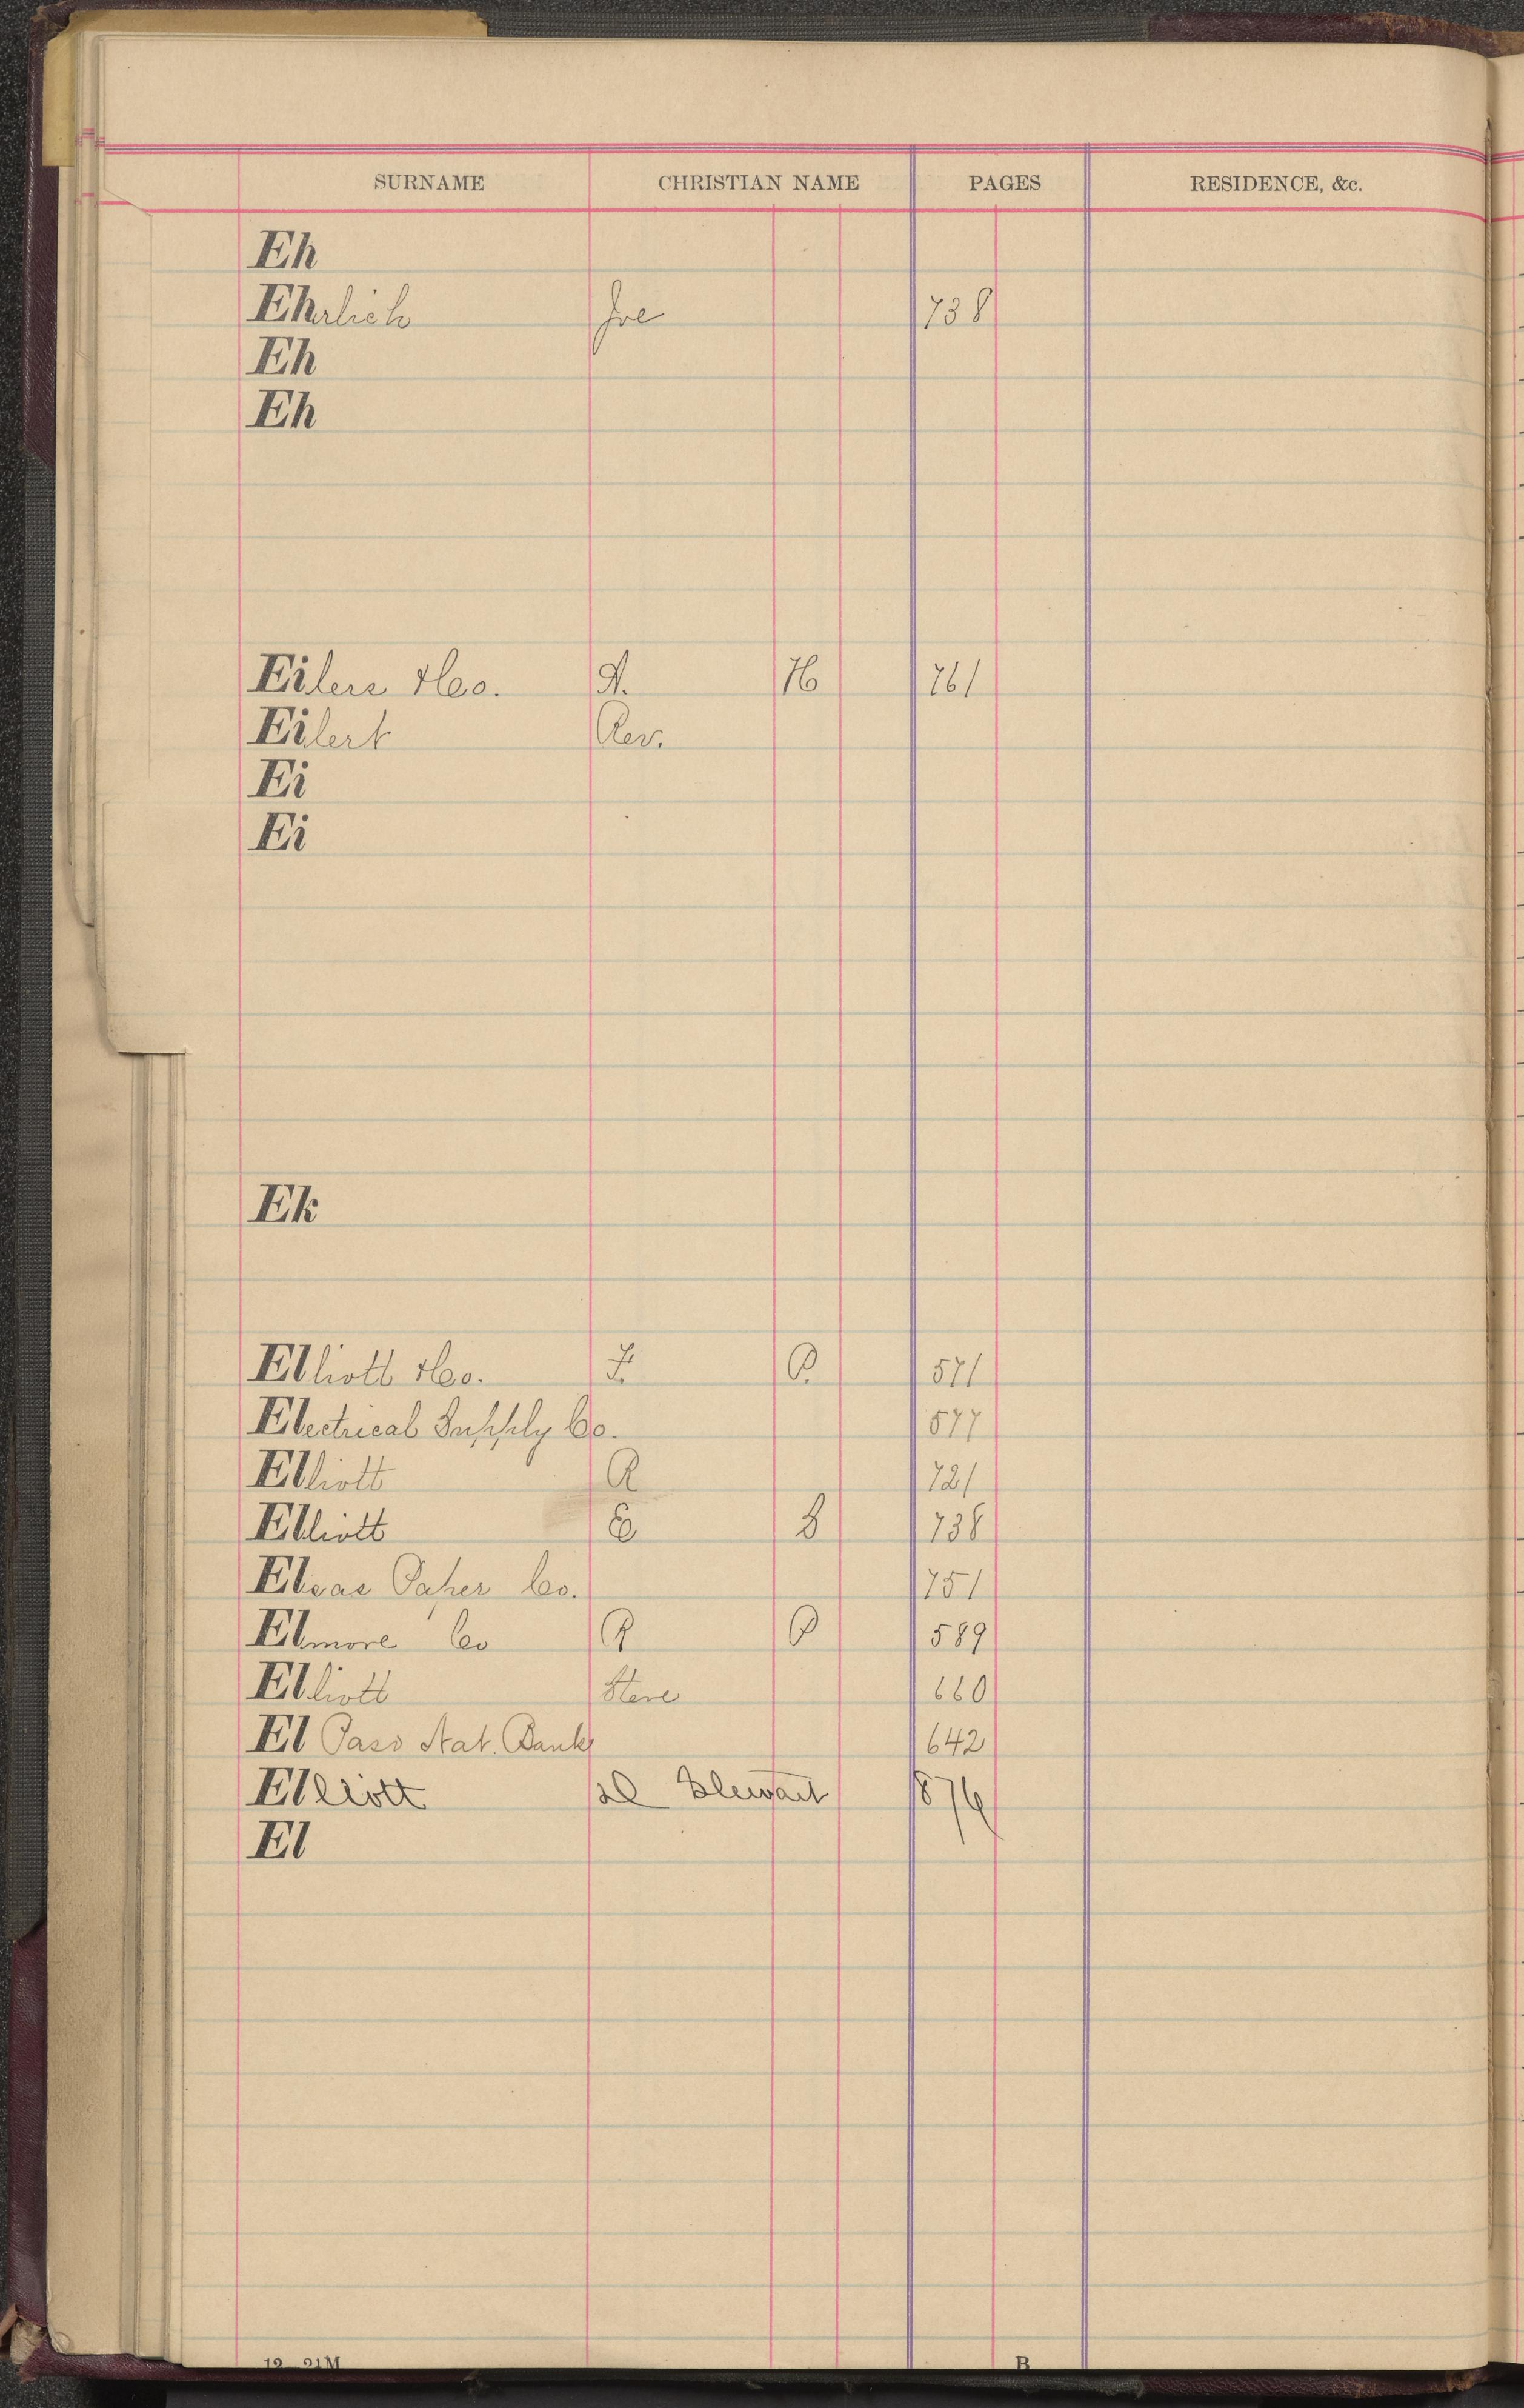 SURNAME CHRISTIAN NAME PAGES RESIDENCE, &c.
Eh
Ehrlich Joe 738
Eh
Eh
Eilers &Co. A. H 761
Eilert Rev.
Ei
Ei
Ek
Elliott &Co. F. P. 571
Electrical Supply Co. 577
Elliott R 721
Elliott C B 738
Elvas Paper Co. 751
Elmore Co R P 589
Elliott Steve 660
El Paso Nat. Bank 642
Elliott Stewart 876
El
12—21M B